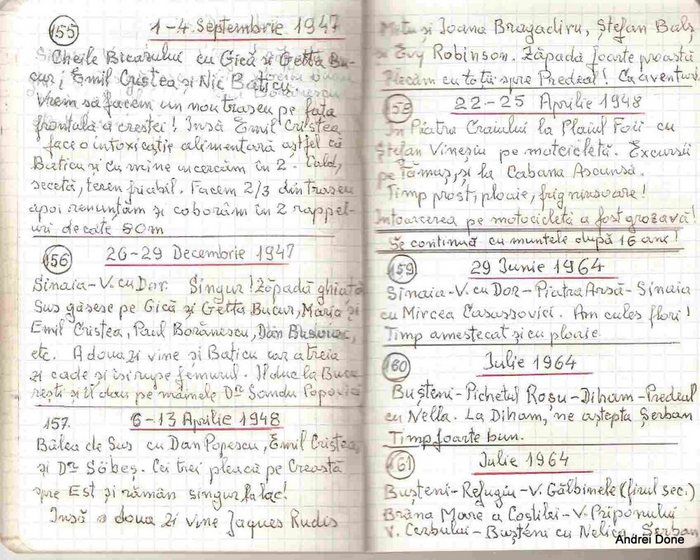 155
1-4 Septembrie 1947
Cheile Bicazului cu Gică și Getta Bu-
cur, Emil Cristea și Nic Baticu.
Vrem să facem un nou traseu pe fața
frontală a crestei! Însă Emil Cristea
face o intoxicație alimentară astfel că
Baticu și cu mine încercăm în 2. Cald,
secetă, teren friabil. Facem 2/3 din traseu
apoi renunțăm și coborâm în 2 rappel-
uri de câte 80m
156
26-29 Decembrie 1947
Sinaia-V. cu Dor. Singur! Zăpadă ghiață
Sus găsesc pe Gică și Getta Bucur, Maria și
Emil Cristea, Paul Borănescu, Dan
etc. A doua zi vine și Baticu iar a treia
zi cade și își rupe femurul. Îl duc la Bucu
rești și îl dau pe mâinele Dr Sandu Popovici
157.
6-13 Aprilie 1948
Bâlea de Sus cu Dan Popescu, Emil Cristea,
și Dr Săbeș. Cei trei pleacă pe Creastă
spre Est și rămân singur la lac!
Însă a doua zi vine Jaques Rudis
și Ioana Bragadiru, Ștefan Balș
și Evy Robinson. Zăpadă foarte proastă
Plecăm cu toții spre Predeal! Cu aventuri
158
22-25 Aprilie 1948
În Piatra Craiului la Plaiul Foii cu
Ștefan Vineșiu pe motocicletă. Excursii
pe Tămaș, și la Cabana Ascunsă.
Timp prost, ploaie, frig ninsoare!
Întoarcerea pe motocicletă a fost grozavă!
Se continuă cu muntele după 16 ani!
159
29 Iunie 1964
Sinaia-V. cu Dor-Piatra Arsă-Sinaia
cu Mircea Casassovici. Am cules flori!
Timp amestecat și cu ploaie.
160
Iulie 1964
Bușteni-Pichetul Roșu-Diham-Predeal
cu Nella. La Diham, ne aștepta Șerban
Timp foarte bun.
161
Iulie 1964
Bușteni-Refugiu-V. Gălbinele (firul sec.)
Brâna Mare a Coștilei-V. Priponului
V. Cerbului-Bușteni cu Nelica, Șerban
Andrei Done